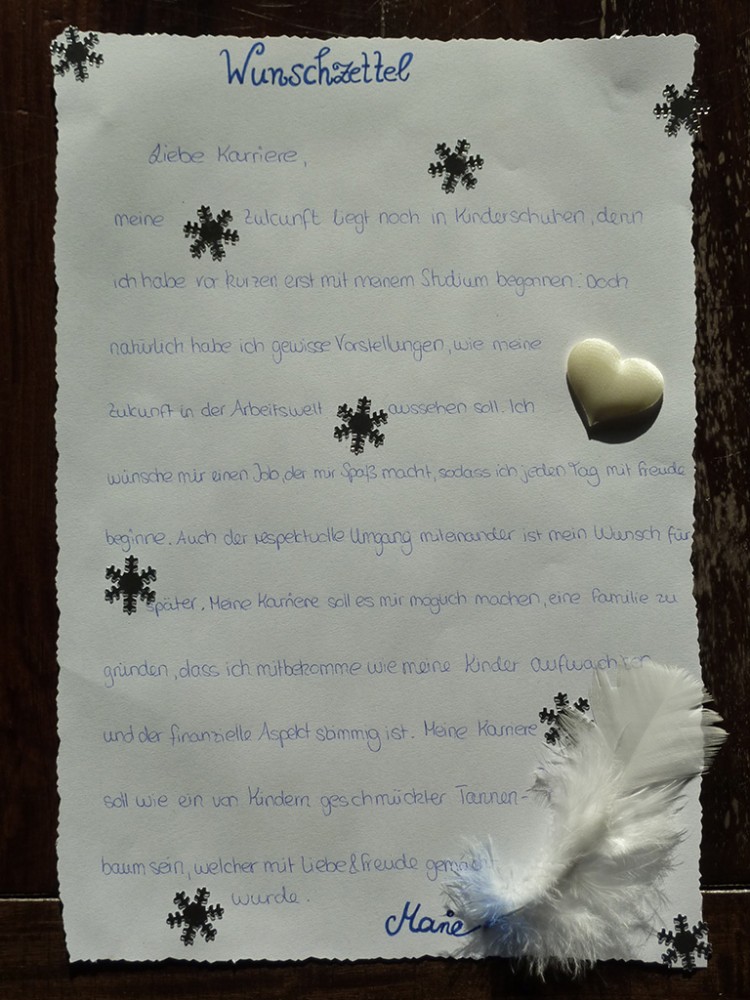 Wunschzettel
Liebe Karriere,
meine Zukunft liegt noch in Kinderschuhen, denn
ich habe vor kurzen erst mit meinem Studium begonnen. Doch
natürlich habe ich gewisse Vorstellungen, wie meine
Zukunft in der Arbeitswelt aussehen soll. Ich
wünsche mir einen Job, der mir Spaß macht, sodass ich jeden Tag mit Freude
beginne. Auch der respektvolle Umgang miteinander ist mein Wunsch für
später. Meine Karriere soll es mir möglich machen, eine Familie zu
gründen, dass ich mitbekomme wie meine Kinder
und der finanzielle Aspekt stimmig ist. Meine Karriere
soll wie ein von Kindern geschmückter Tannen-
baum sein, welcher mit Liebe & Freude gemacht
wurde.
Marie